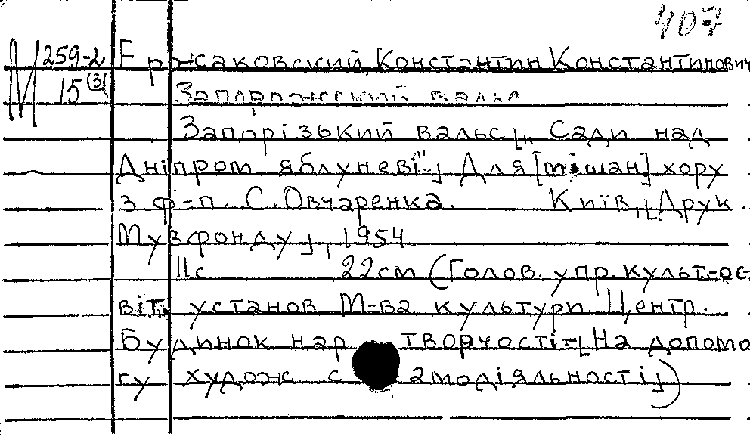 407
М 259-2 Єржаковский, Константин Константинович
15(3) Запорожский вальс
Запорізький вальс[„ Сади над
Дніпром яблуневі"] Для [мішан] хору
з ф-п. С. Овчаренка. Київ, [Друк.
Музфонду], 1954
11с 22см (Голов. упр. культ-ос
віт. установ М-ва культури Центр.
Будинок нар творчості-[На допомо
гу худож самодіяльності])